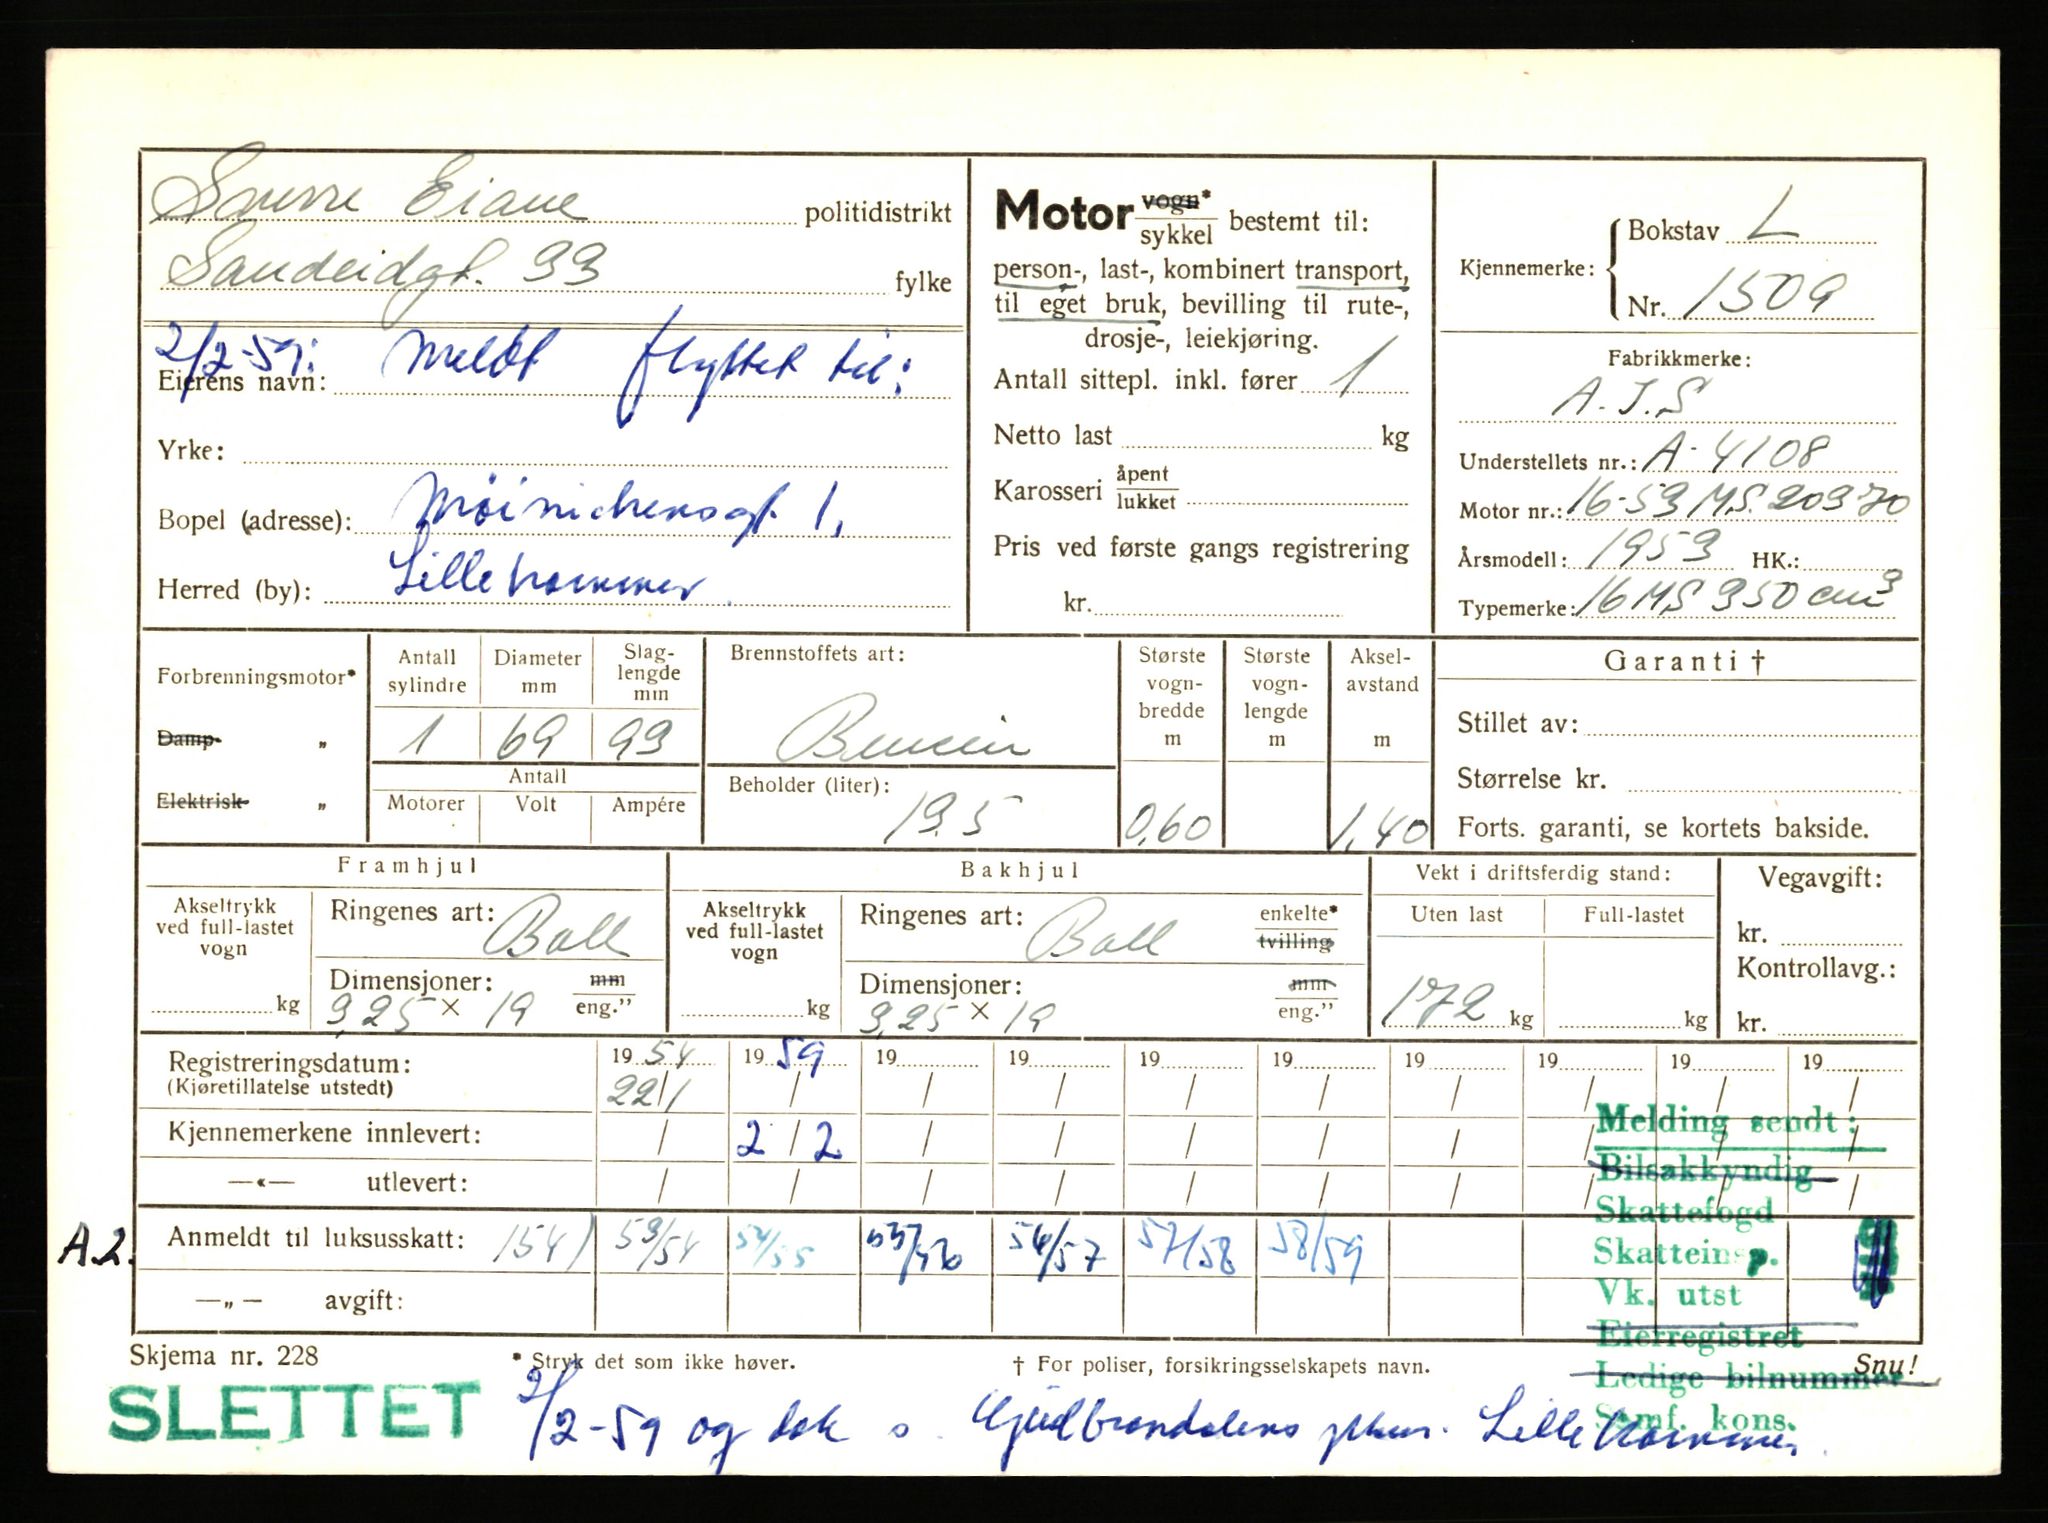 Sverre Eiane politidistrikt
Sandeidgt. 33 fylke
2/2-59: Meldt flyttet til:
Eierens navn:
Yrke:
Bopel (adresse): Møinichensgt. 1,
Herred (by): Lillehammer.
Motor vogn* sykkel bestemt til:
person-, last-, kombinert transport,
til eget bruk, bevilling til rute-,
drosje-, leiekjøring.
Antall sittepl. inkl. fører 1
Netto last kg
Karosseri åpent lukket
Pris ved første gangs registrering
kr.
Kjennemerke: Bokstav L
Nr. 1509
Fabrikkmerke:
A.J.S
Understellets nr.: A-4108
Motor nr.: 16-53 MS. 20370
Årsmodell: 1953 HK.:
Typemerke: 16 MS 350 cm3
Forbrenningsmotor*
Damp- „
Elektrisk- „
Antall sylindre 1
Diameter mm 69
Slaglengde mm 93
Antall
Motorer Volt Ampére
Brennstoffets art:
Bensin
Beholder (liter):
13,5
Største vognbredde m 0,60
Største vognlengde m
Akselavstand m 1,40
Garanti †
Stillet av:
Størrelse kr.
Forts. garanti, se kortets bakside.
Framhjul
Akseltrykk ved full-lastet vogn kg
Ringenes art: Ball
Dimensjoner: mm
3,25 × 19 eng.”
Bakhjul
Akseltrykk ved full-lastet vogn kg
Ringenes art: Ball enkelte* tvilling
Dimensjoner: mm
3,25 × 19 eng.”
Vekt i driftsferdig stand:
Uten last Full-lastet
172 kg kg
Vegavgift:
kr.
Kontrollavg.:
kr.
Registreringsdatum: 19 54 19 59 19 19 19 19 19 19 19 19
(Kjøretillatelse utstedt) 22/1 / / / / / / / / /
Kjennemerkene innlevert: / 2/2 / / / / / / / /
—«— utlevert: / / / / / / / / / /
A.2. Anmeldt til luksusskatt: 154) 53/54 54/55 55/56 56/57 57/58 58/59
—„— avgift:
Melding sendt:
Bilsakkyndig
Skattefogd
Skatteinsp.
Vk. utst
Eierregistret
Ledige bilnummer
Samf. kons.
Skjema nr. 228 * Stryk det som ikke høver. † For poliser, forsikringsselskapets navn. Snu!
SLETTET 2/2-59 og dok s. Gudbrandalens pkam. Lillehammer.